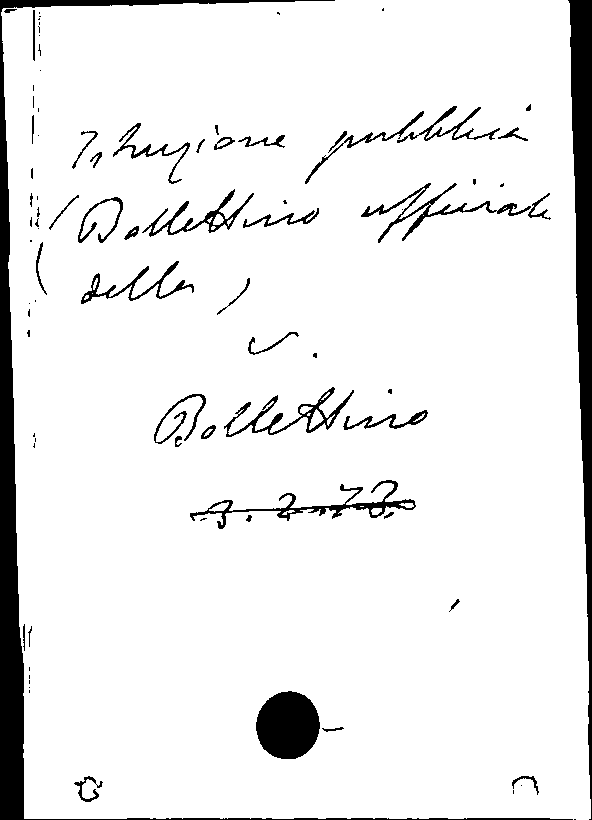 Istruzione pubblica
(Bollettino ufficiale
della)
v.
Bollettino
3.2.73.